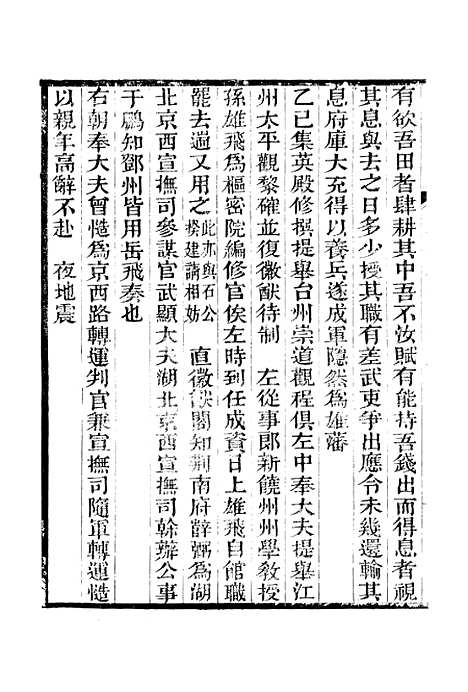 有欲吾田者肆耕其中吾不汝賦有能持吾錢出而得息者視
其息與去之日多少授其職有差武吏爭出應令未幾還輸其
息府庫大充得以養兵遂成軍隱然爲雄藩
乙巳集英殿修撰提舉台州崇道觀程俱左中奉大夫提舉江
州太平觀黎確並復徽猷待制 左從事郎新饒州州學教授
孫雄飛爲樞密院編修官俟左時到任成資日上雄飛自館職
罷去適又用之此亦與石公揆建請相妨 直徽猷閣知荆南府薛弼爲湖
北京西宣撫司參謀官武顯大夫湖北京西宣撫司幹辦公事
于鵬知鄧州皆用岳飛奏也
右朝奉大夫曾慥爲京西路轉運判官兼宣撫司隨軍轉運慥
以親年高辭不赴 夜地震